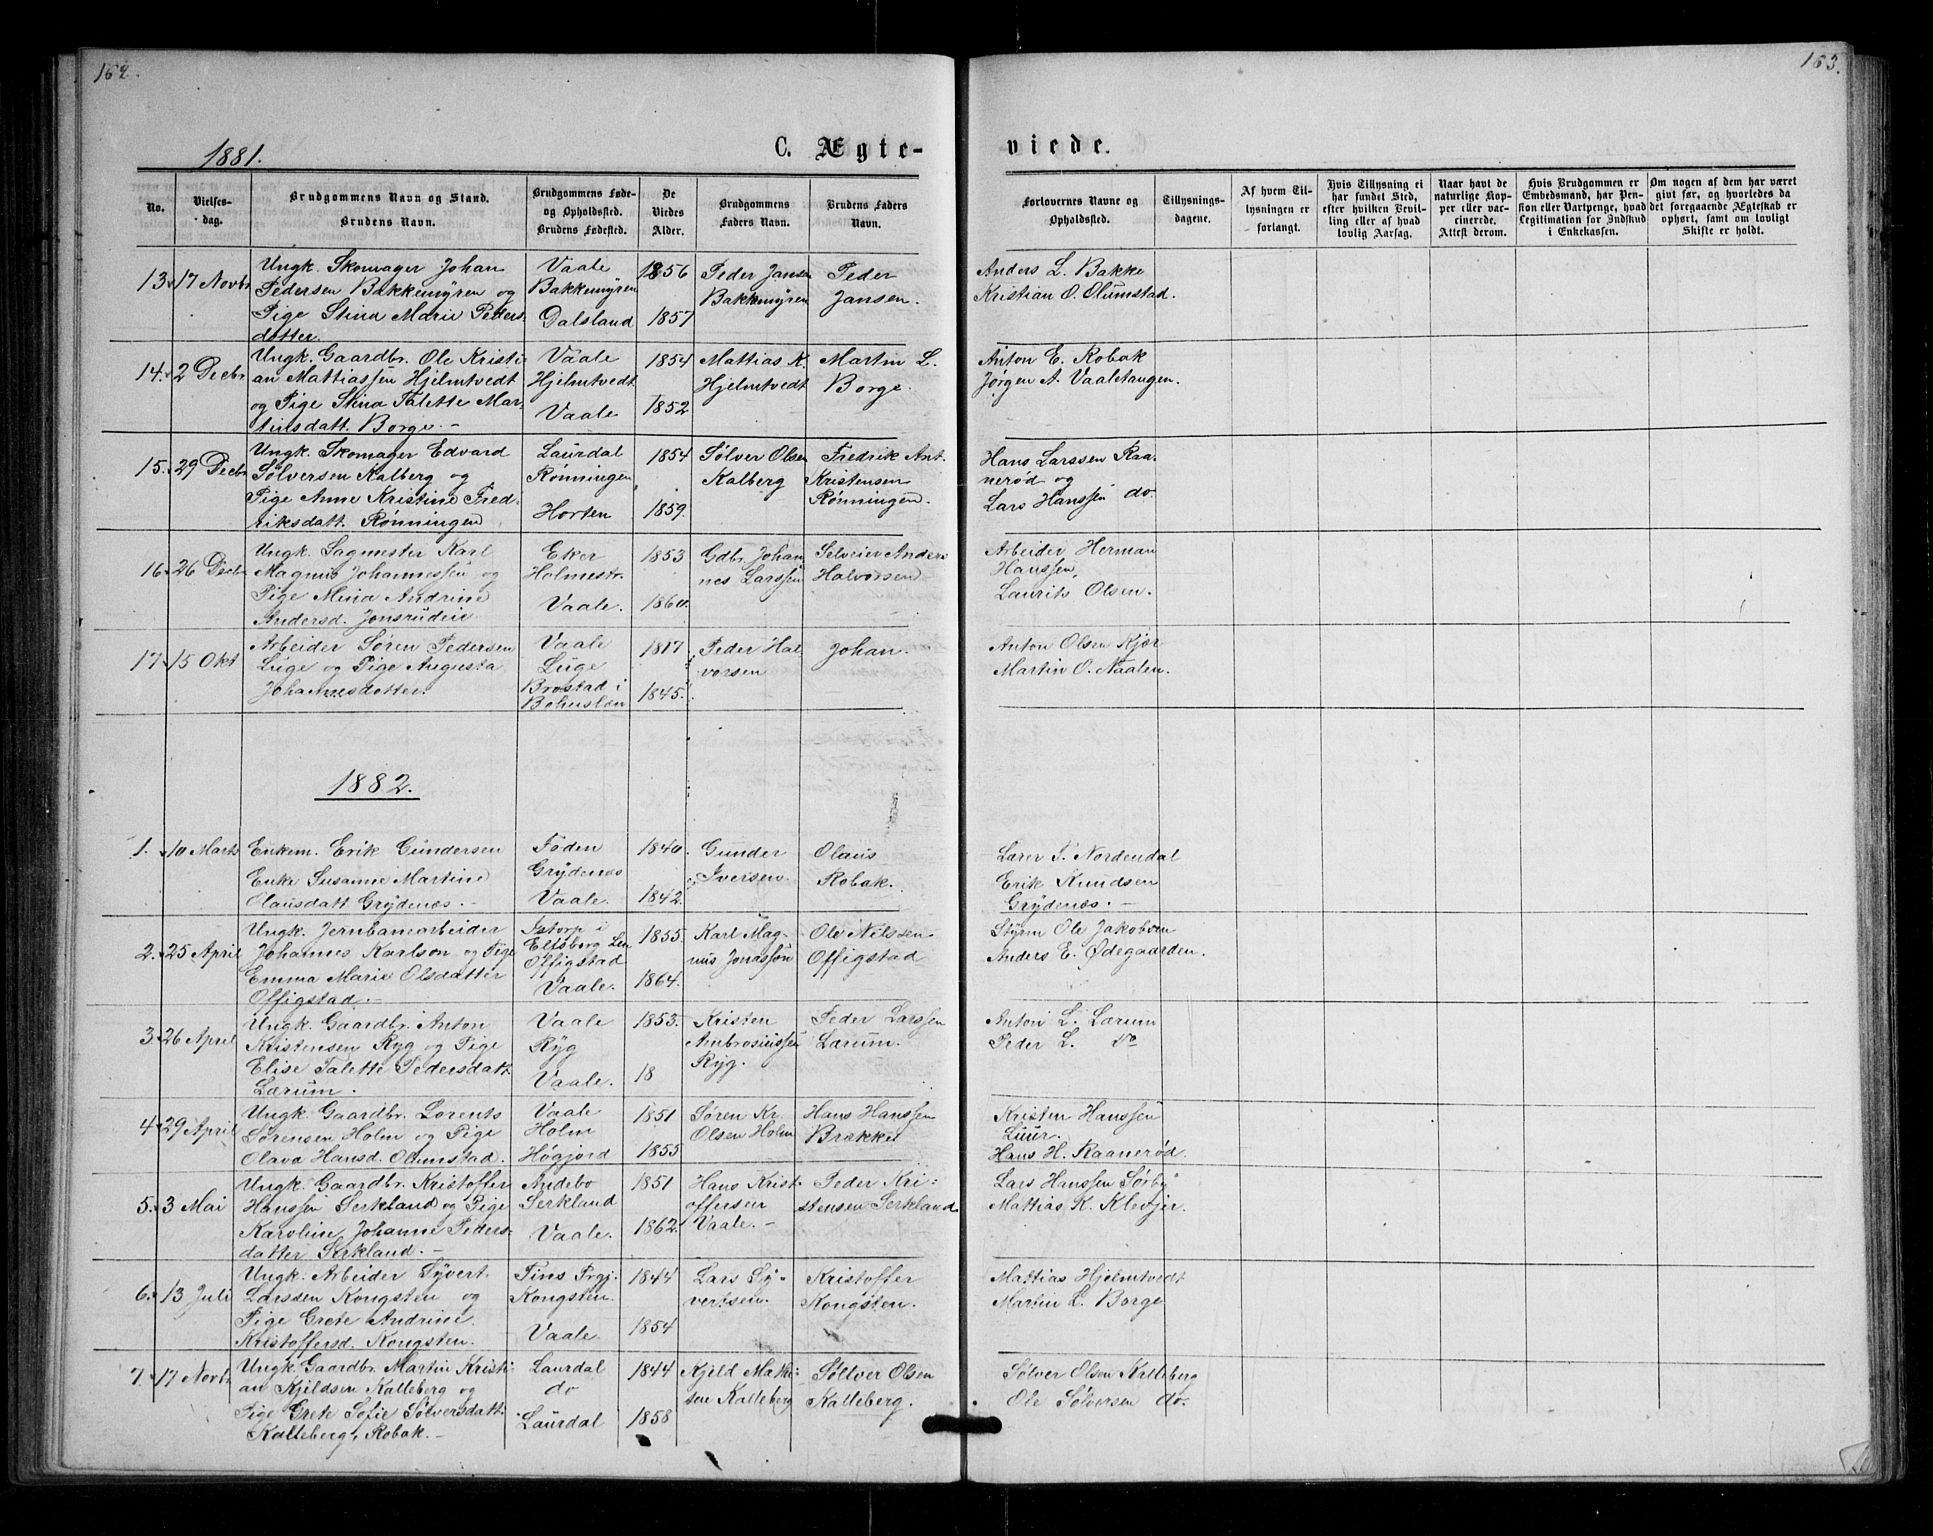 162.
163.
1881.
C. Ægte-
viede.
No.
Vielses-
dag.
Brudgommens Navn og Stand.
Brudens Navn.
Brudgommens Føde-
og Opholdsted.
Brudens Fødested.
De
Viedes
Alder.
Brudgommens
Faders Navn.
Brudens Faders
Navn.
Forlovernes Navne og
Opholdsted.
Tillysnings-
dagene.
Af hvem Til-
lysningen er
forlangt.
Hvis Tillysning ei
har fundet Sted,
efter hvilken Bevil-
ling eller af hvad
lovlig Aarsag.
Naar havt de
naturlige Kop-
per eller vac-
cinerede.
Attest derom.
Hvis Brudgommen er
Embedsmand, har Pen-
sion eller Vartpenge, hvad
Legitimation for Indskud
i Enkekassen.
Om nogen af dem har været
givt før, og hvorledes da
det foregaaende Ægteskab er
ophørt, samt om lovligt
Skifte er holdt.
13. 17 Novbr
Ungk. Skomager Johan
Pedersen Bakkemyren og
Pige Stina Marie Peders-
datter.
Vaale
Bakkemyren
Dalsland
1856
1857
Peder Jansen
Bakkemyren
Peder
Jansen.
Anders L. Bakke
Kristian O. Olumstad.
14. 2 Decbr
Ungk. Gaardbr. Ole Kristi-
an Mattiassen Hjelmtvedt
og Pige Stina Talette Mar-
tinsdatt. Borge. -
Vaale
Hjelmtvedt
Vaale
1854
1852
Mattias K.
Hjelmtvedt
Martin L.
Borge.
Anton E. Robak
Jørgen A. Vaaletangen.
15. 29 Decbr
Ungk. Skomager Edvard
Sølversen Kalberg og
Pige Anne Kristine Fred-
riksdatt. Rønningen
Laurdal
Rønningen
Horten
1854
1859.
Sølver Olsen
Kalberg
Fredrik Ant.
Kristensen
Rønningen.
Hans Larssen Raa-
nerød og
Lars Hanssen do.
16. 26 Decbr
Ungk. Sagmester Karl
Magnus Johannessen og
Pige Mina Andrine
Andersd. Jonsrudeie
Eker
Holmestr.
Vaale.
1853
1860.
Gdbr. Johan
nes Larssen
Selveier Anders
Halvorsen
Arbeider Herman
Hanssen
Laurits Olsen.
17. 15 Okt
Arbeider Søren Pedersen
Luge og Pige Augusta
Johannesdotter.
Vaale
Luge
Brostad i
Bohuslæn
1817
1845.
Peder Hal
vorsen
Johan.
Anton Olsen Kjær
Martin O. Naalen.
1882.
1. 10 Marts
Enkem. Erik Gundersen
Enke Susanne Martine
Olausdatt Grydenæs. -
Foden
Grydenæs
Vaale.
1840.
1842.
Gunder
Iversen.
Olaus
Robak.
Lærer T. Nordendal
Erik Knudsen
Grydenæs. -
2. 25 April
Ungk. Jernbanearbeider
Johannes Karlson og Pige
Emma Marie Olsdatter
Offigstad. -
Istorp i
Elfsberg Len
Offigstad
Vaale.
1855.
1864.
Karl Mag-
nus Jonasson
Ole Nilssen
Offigstad
Styrm Ole Jakobsen
Anders E. Ødegaarden.
3. 26 April
Ungk. Gaardbr. Anton
Kristensen Ryg og Pige
Elise Talette Pedersdatt
Lærum.
Vaale
Ryg
Vaale.
1853.
18
Kristen
Ambrosiussen
Ryg.
Peder Larssen
Lærum.
Anton L. Lærum
Peder L. do
4. 29 April
Ungk. Gaardbr. Lorents
Sørensen Holm og Pige
Olava Hansd. Olumstad.
Vaale
Holm
Høgjord
1851
1855
Søren Kr.
Olsen Holm
Hans Hanssen
Brække
Kristen Hanssen
Luur.
Hans H. Raanerød
5. 3 Mai
Ungk. Gaardbr. Kristoffer
Hanssen Serkland og Pige
Karoline Johanne Peders-
datter Serkland. -
Andebo
Serkland
Vaale.
1851
1862.
Hans Krist-
offersen
Vaale. -
Peder Kri-
stensen Serkland
Lars Hanssen Sørby
Mattias K. Klevjer.
6. 13 Juli
Ungk. Arbeider Syvert
Larssen Kongsten og
Pige Grete Andrine
Kristoffersd. Kongsten.
Tins Prgj.
Kongsten.
Vaale
1844
1854
Lars Sy-
vertsen.
Kristoffer
Kongsten.
Mattias Hjelmtvedt
Martin L. Borge
7. 17 Novbr
Ungk. Gaardbr. Martin Kristi-
an Kjeldsen Kalleberg og
Pige Grete Sofie Sølversdatt.
Kalleberg, Robak. -
Laurdal
do
Laurdal
1844
1858
Kjeld Mathi-
sen Kalleberg
Søllver Olsen
Kalleberg.
Sølver Olsen Kalleberg
Ole Sølversen do.